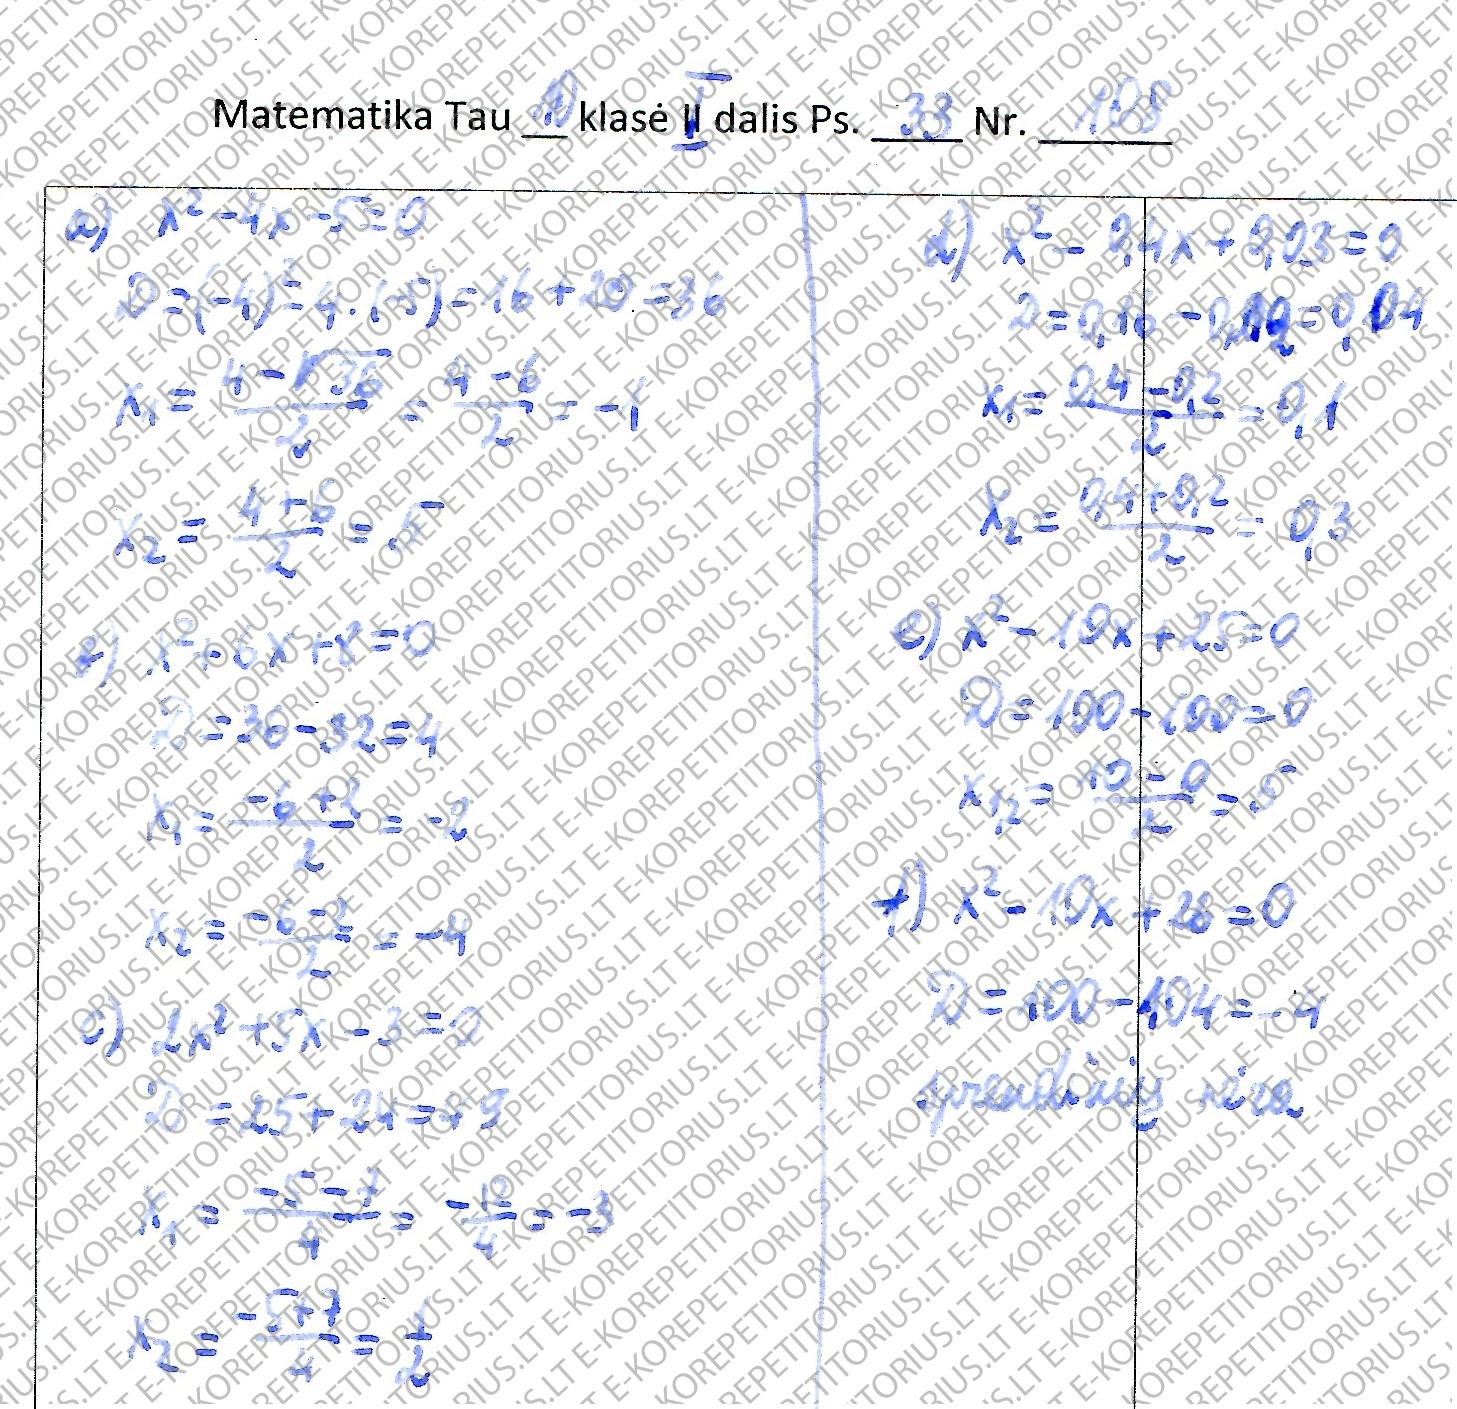 Matematika Tau 10 klasė I dalis Ps. 33 Nr. 108
a) x² - 4x - 5 = 0
D = (-4)² - 4 · (-5) = 16 + 20 = 36
x₁ = (4 - √36)/2 = (4 - 6)/2 = -1
x₂ = (4 + 6)/2 = 5
b) x² + 6x + 8 = 0
D = 36 - 32 = 4
x₁ = (-6 + 2)/2 = -2
x₂ = (-6 - 2)/2 = -4
c) 2x² + 5x - 3 = 0
D = 25 + 24 = 49
x₁ = (-5 - 7)/4 = -12/4 = -3
x₂ = (-5 + 7)/4 = 1/2
d) x² - 0,4x + 0,03 = 0
D = 0,16 - 0,12 = 0,04
x₁ = (0,4 - 0,2)/2 = 0,1
x₂ = (0,4 + 0,2)/2 = 0,3
e) x² - 10x + 25 = 0
D = 100 - 100 = 0
x₁,₂ = (10 - 0)/2 = 5
f) x² - 10x + 26 = 0
D = 100 - 104 = -4
sprendinių nėra
E-KOREPETITORIUS.LT